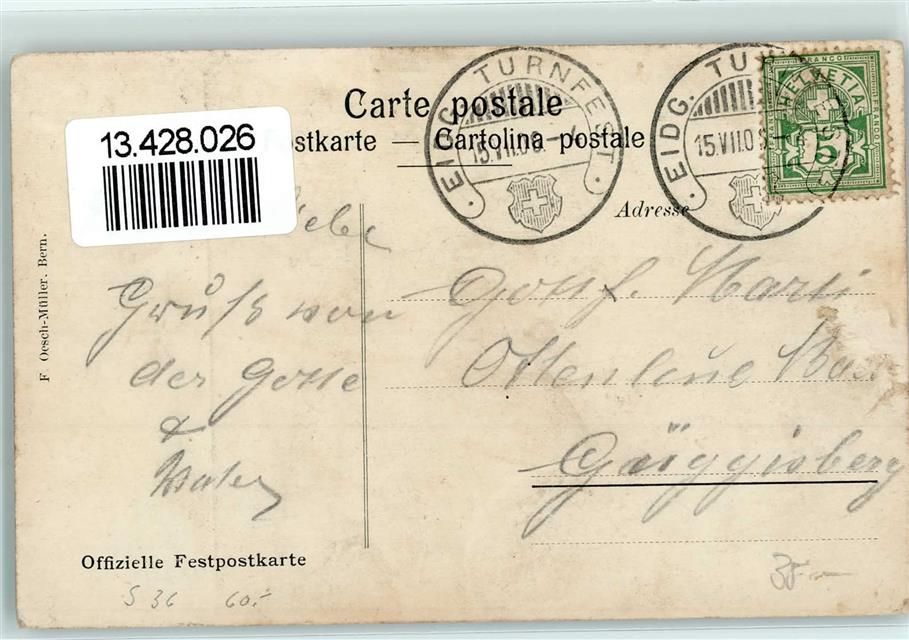 13.428.026
Carte postale
stkarte — Cartolina postale
EIDG. TURNFEST.
15.VII.06.
EIDG. TU
15.VII.0
FRANCO
HELVETIA
5
Adresse
Gruß von
der Gotte
&
Gottf. Marti
Ottenleue Bad
Guggisberg
F. Oesch-Müller. Bern.
Offizielle Festpostkarte
S 36 60.-